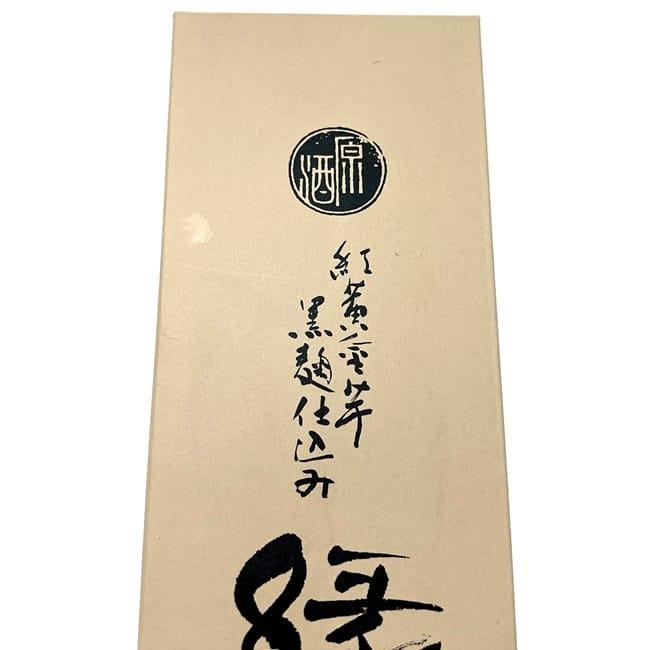 原酒
紅黄金芋
黒麹仕込み